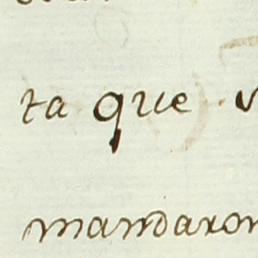 ta que
mandaron